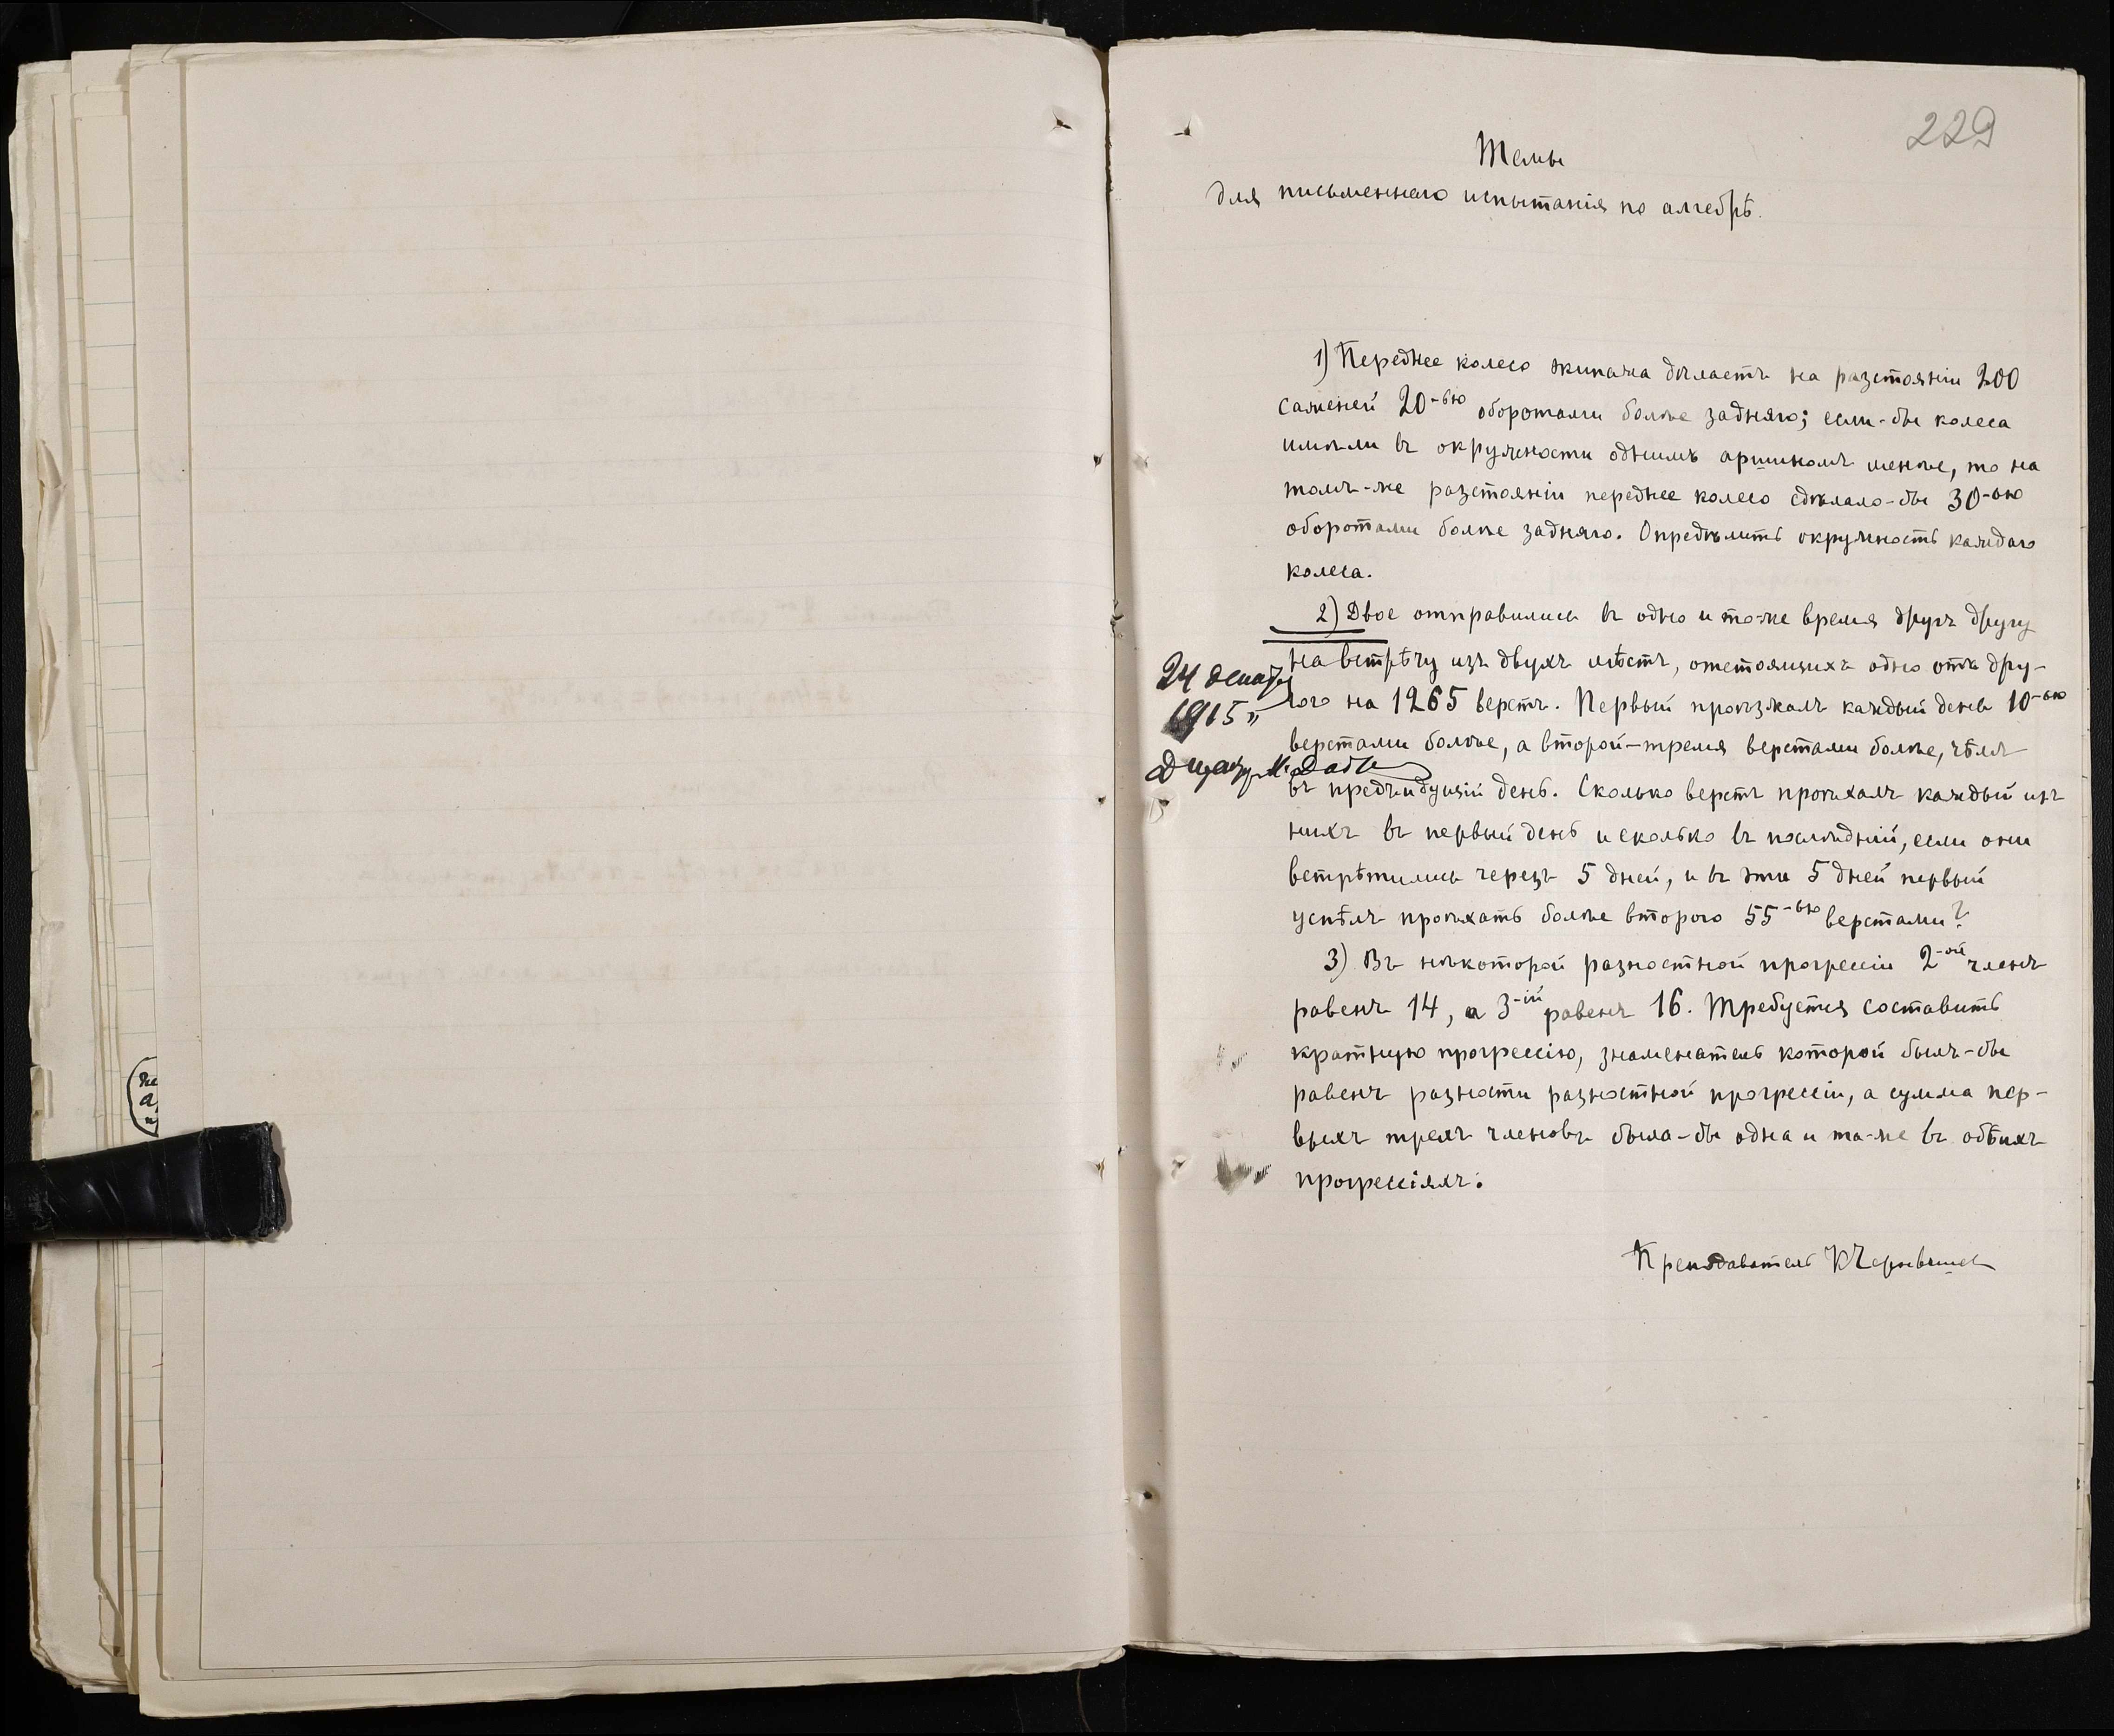 229
Темы
для письменнаго испытанія по алгебрѣ.
1) Переднее колесо экипажа дѣлаетъ на разстояніи 200
саженей 20-ью оборотами болѣе задняго; если-бы колеса
имѣли въ окружности однимъ аршиномъ менѣе, то на
томъ-же разстояніи переднее колесо сдѣлало-бы 30-ью
оборотами болѣе задняго. Опредѣлить окружность каждаго
колеса.
2) Двое отправились въ одно и то-же время другъ другу
на встрѣчу изъ двухъ мѣстъ, отстоящихъ одно отъ дру-
гого на 1265 верстъ. Первый проѣзжалъ каждый день 10-ью
верстами болѣе, а второй-тремя верстами болѣе, чѣмъ
въ предъидущій день. Сколько верстъ проѣхалъ каждый изъ
нихъ въ первый день и сколько въ послѣдній, если они
встрѣтились черезъ 5 дней, и въ эти 5 дней первый
успѣлъ проѣхать болѣе второго 55-ью верстами?
3) Въ нѣкоторой разностной прогрессіи 2-ой членъ
равенъ 14, а 3-ій равенъ 16. Требуется составить
кратную прогрессію, знаменатель которой былъ-бы
равенъ разности разностной прогрессіи, а сумма пер-
выхъ трехъ членовъ была-бы одна и та-же въ обѣихъ
прогрессіяхъ.
Преподаватель К Чернышев
24 декабр
1915